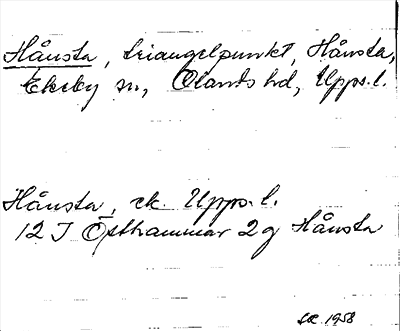 Hånsta, triangelpunkt, Hånsta,
Ekeby sn, Olands hd, Upps. l.
Hånsta, ek Upps. l.
12 I Östhammar 2 g Hånsta
1958